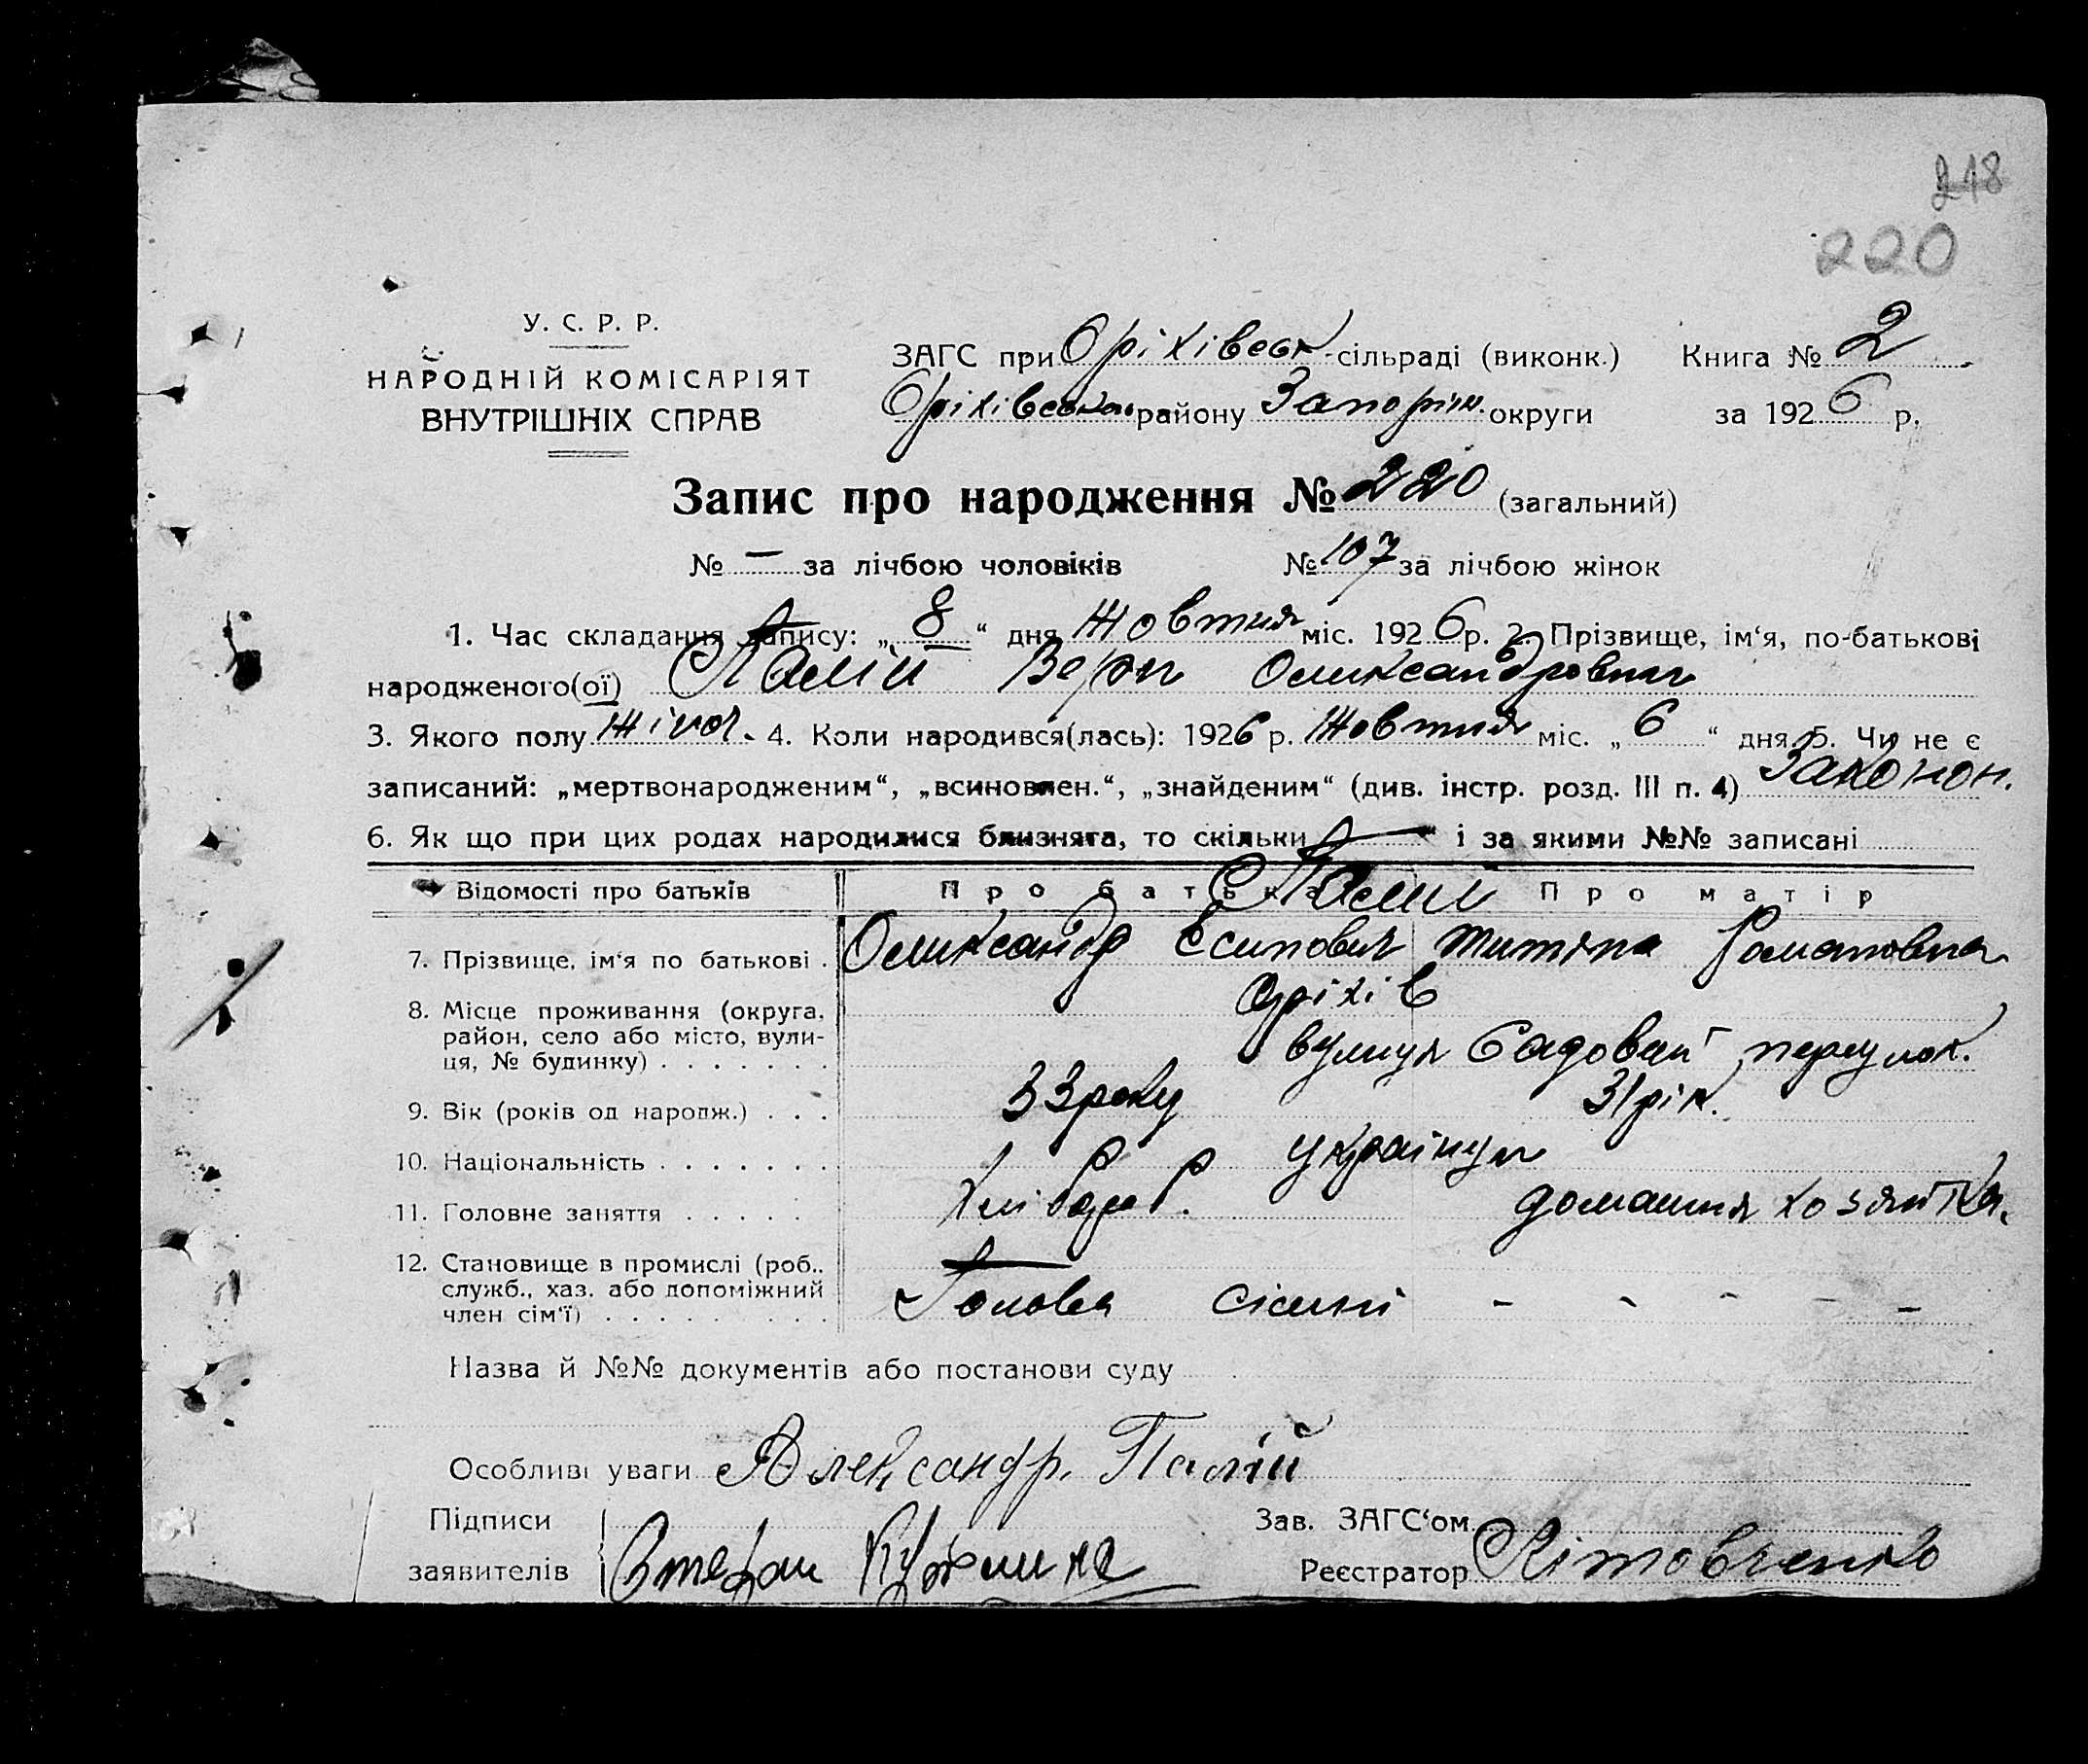 218
220
У. С. Р. Р.
НАРОДНІЙ КОМІСАРІЯТ
ВНУТРІШНІХ СПРАВ
ЗАГС при Оріхівськ -сільраді (виконк.) Книга № 2
Оріхівського району Запоріж. округи за 1926 р.
Запис про народження № 220 (загальний)
№ — за лічбою чоловіків № 107 за лічбою жінок
1. Час складання запису: „ 8 “ дня Жовтня міс. 1926 р. 2. Прізвище, ім‘я, по-батькові
народженого(ої) Палій Вера Олександровна
3. Якого полу жіноч. 4. Коли народився(лась): 1926 р. Жовтня міс. „ 6 “ дня 5. Чи не є
записаний: „мертвонародженим“, „всиновлен.“, „знайденим“ (див. інстр. розд. III п. 4) Законон.
6. Як що при цих родах народилися близнята, то скільки — і за якими №№ записані
Відомості про батьків Про батька Про матір
Палий
7. Прізвище, ім‘я по батькові . Олександр Есипович Титяна Романовна
8. Місце проживання (округа, Оріхів
район, село або місто, вули-
ця, № будинку) . . . . . . . вулиця Садовий переулок.
9. Вік (років од народж.) . . . 33 року 31 рік.
10. Національність . . . . . . . українця
11. Головне заняття . . . . . Хлібор Р. домашня хозяйка.
12. Становище в промислі (роб.,
служб., хаз. або допоміжний Голова сісимі - - - - -
член сім‘ї) . . . . . . . . .
Назва й №№ документів або постанови суду
Особливі уваги Александр. Палій
Підписи Зав. ЗАГС‘ом
заявителів Стефан Реєстратор Літовченко